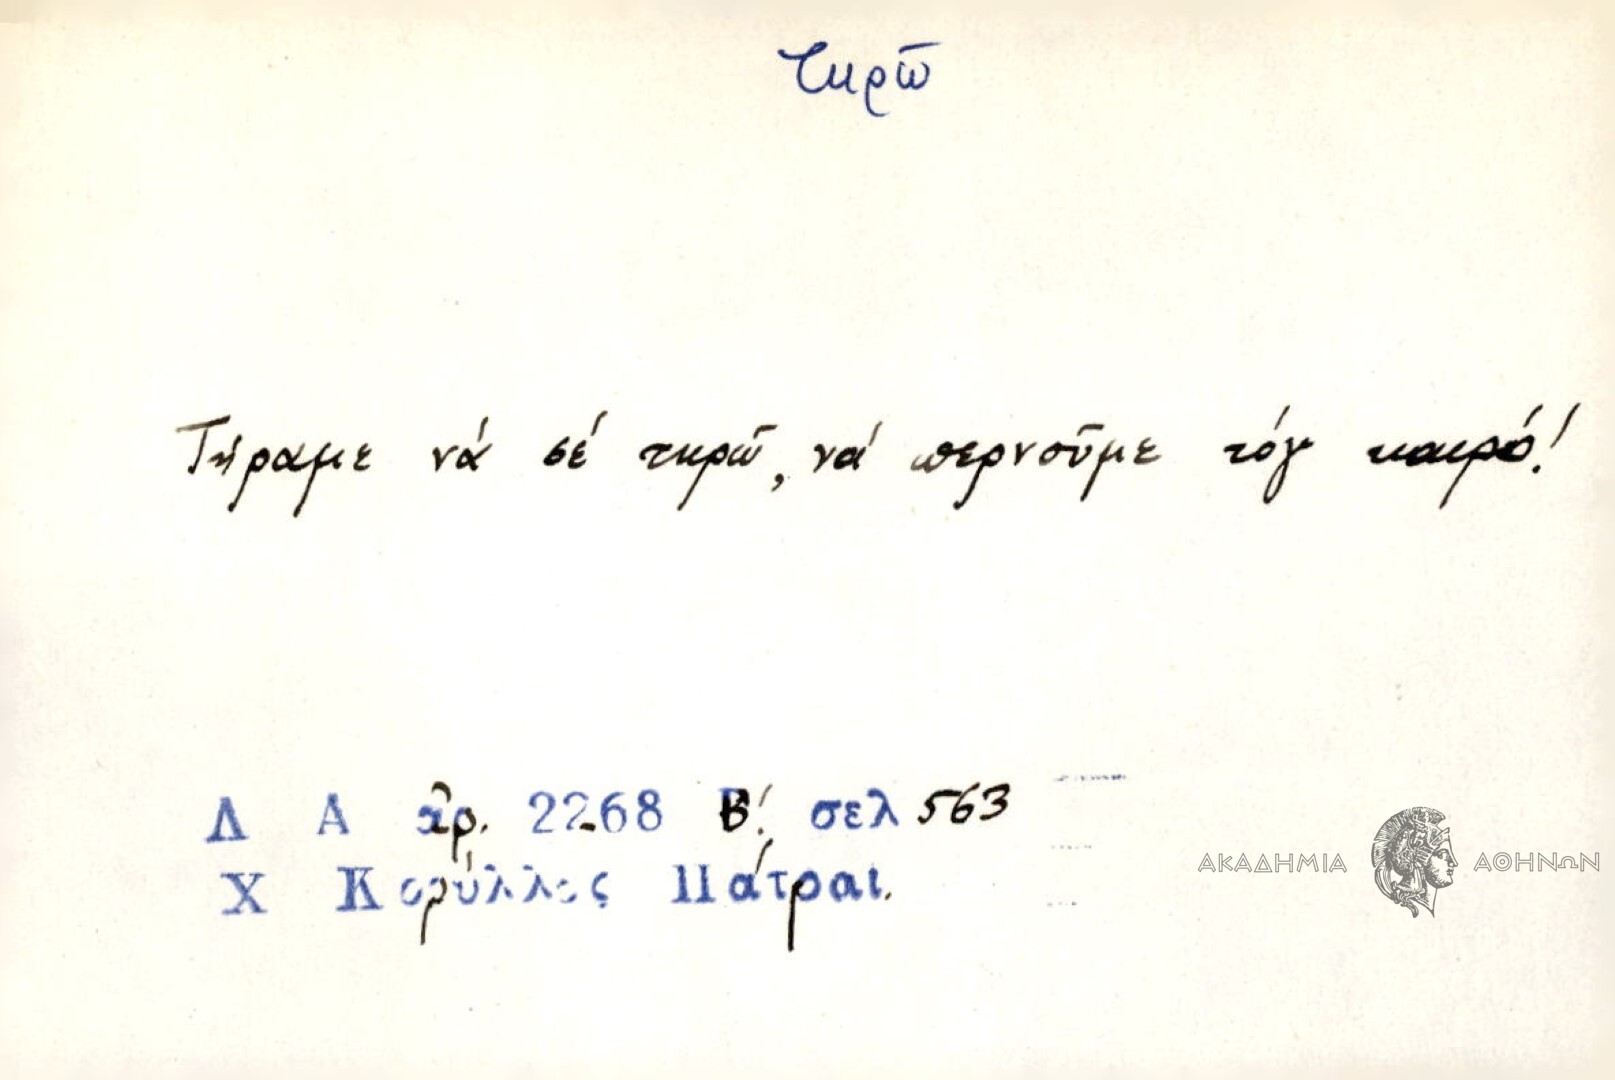 τηρῶ
Τήραμε νά σέ τηρῶ, νά περνοῦμε τόγ καιρό!
Λ Α ἀρ. 2268 Β'. σελ 563
Χ Κορύλλος Πάτραι.
ΑΚΑΔΗΜΙΑ ΑΘΗΝΩΝ